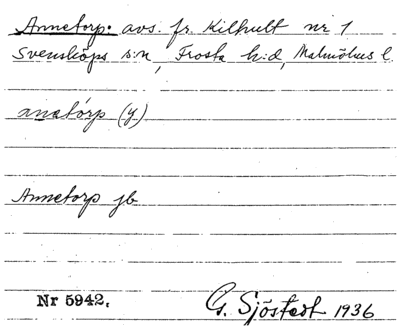 Annetorp: avs. fr. Kilhult nr 1
Svensköps s:n, Frosta h:d, Malmöhus l.
anatórp (y)
Annetorp jb
Nr 5942.
G. Sjöstedt 1936